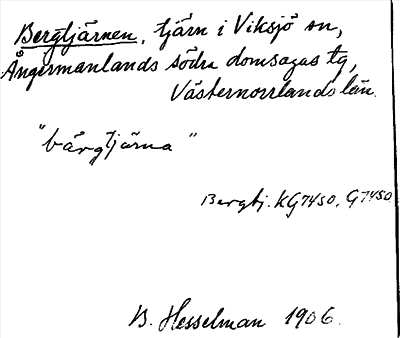 Bergtjärnen, tjärn i Viksjö sn,
Ångermanlands södra domsagas tg,
Västernorrlands län.
"bärgtjärna"
Bergtj. KG7450, G7450
B. Hesselman 1906.